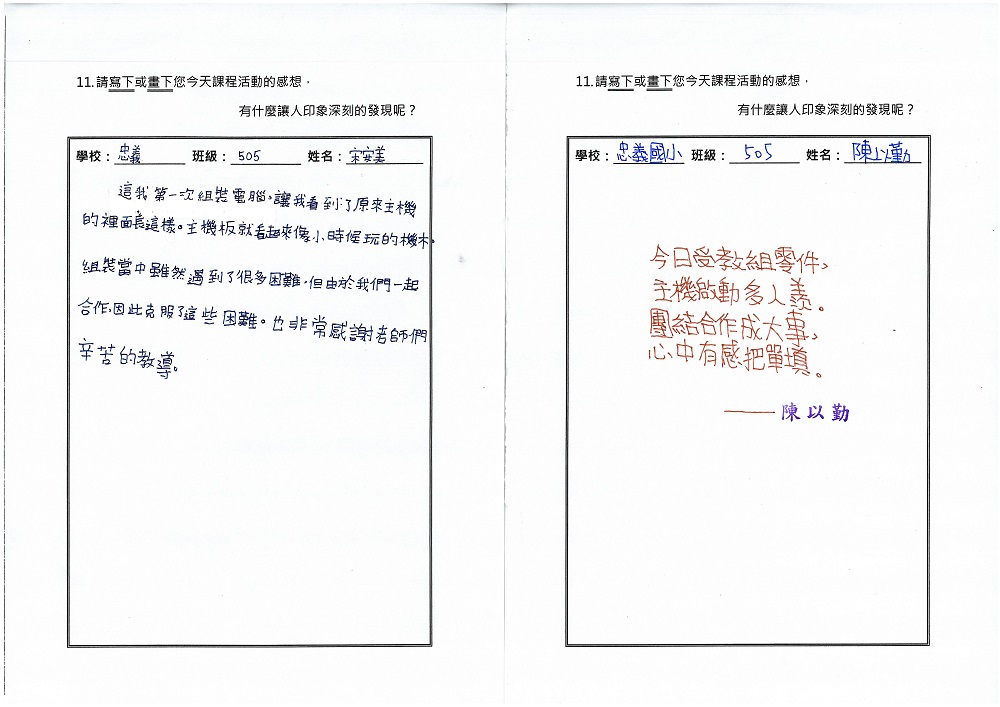 11.請寫下或畫下您今天課程活動的感想,
有什麼讓人印象深刻的發現呢?
學校:忠義 班級:505 姓名:宋安美
這我第一次組裝電腦,讓我看到了原來主機
的裡面長這樣。主機板就看起來像小時候玩的積木。
組裝當中雖然遇到了很多困難,但由於我們一起
合作,因此克服了這些困難。也非常感謝老師們
辛苦的教導。
11.請寫下或畫下您今天課程活動的感想,
有什麼讓人印象深刻的發現呢?
學校:忠義國小 班級:505 姓名:陳以勤
今日受教組零件,
主機啟動多人羨。
團結合作成大事,
心中有感把單填。
——陳以勤